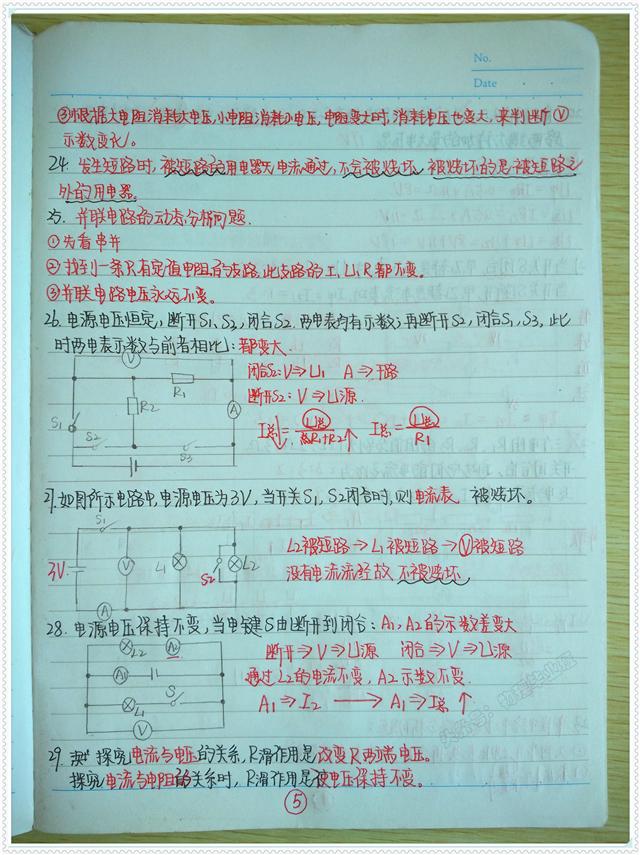 No.
Date
③根据大电阻消耗大电压,小电阻消耗小电压,电阻变大时,消耗电压也变大,来判断Ⓥ
示数变化。
24. 发生短路时,被短路的用电器无电流通过,不会被烧坏,被烧坏的是被短路之
外的用电器.
25. 并联电路的动态分析问题.
①先看串并
②找到一条只有定值电阻的支路,此支路的I、U、R都不变。
③并联电路电压永远不变。
26. 电源电压恒定,断开S1、S3,闭合S2.两电表均有示数;再断开S2,闭合S1、S3,此
时两电表示数与前者相比:都变大.
闭合S2: V⇒U1 A⇒干路
断开S2: V⇒U源.
V
R1
R2
A
S1
S2
S3
I总=U总/R1+R2↑ I总=U总/R1
27.如图所示电路中,电源电压为3V,当开关S1、S2闭合时,则电流表 被烧坏。
S1
3V
V
L1
S2
L2
A
L2被短路→L1被短路→Ⓥ被短路
没有电流流经故不被烧坏
28. 电源电压保持不变,当电键S由断开到闭合:A1、A2的示数差变大
L2
A2
A1
S
L1
V
断开⇒V⇒U源 闭合⇒V⇒U源
通过L2的电流不变,A2示数不变.
A1⇒I2 → A1⇒I总↑
29. 探究电流与电压的关系,R滑作用是改变R两端电压。
探究电流与电阻的关系时,R滑作用是使电压保持不变。
5